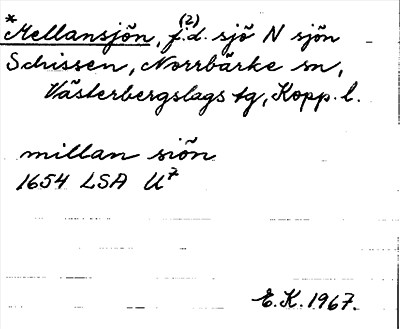 *Mellansjön, f.d. (2) sjö N sjön
Schissen, Norrbärke sn,
Västerbergslags tg, Kopp. l.
millan siön
1654 LSA U⁷
E.K. 1967.